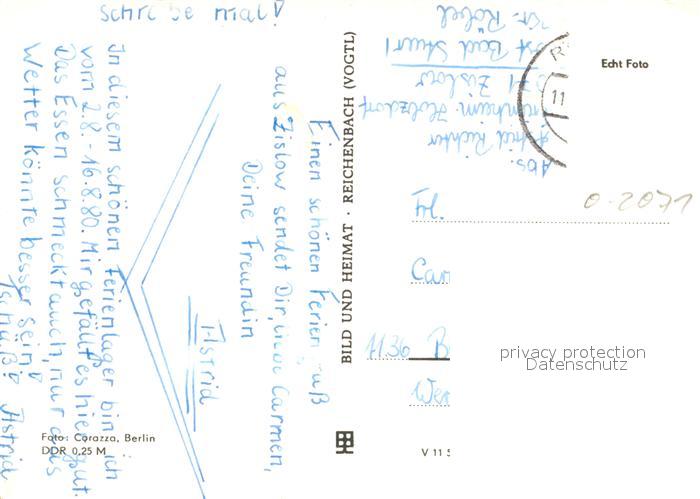 Einen schönen Feriengruß
aus Zislow sendet Dir, liebe Carmen,
Deine Freundin
Astrid
In diesem schönen Ferienlager bin ich
vom 2.8. - 16.8.80. Mir gefällt es hier gut.
Das Essen schmeckt auch, nur das
Wetter könnte besser sein!
Tschüß! Astrid
Schreibe mal!
Foto: Carazza, Berlin
DDR 0,25 M
BILD UND HEIMAT · REICHENBACH (VOGTL)
V 11 5
Abs.
Astrid Richter
Holzdorf
2071 Zislow
Post Bad Stuer
Kr. Röbel
Echt Foto
11
0-2071
Frl.
Car
1136 B
We
privacy protection
Datenschutz